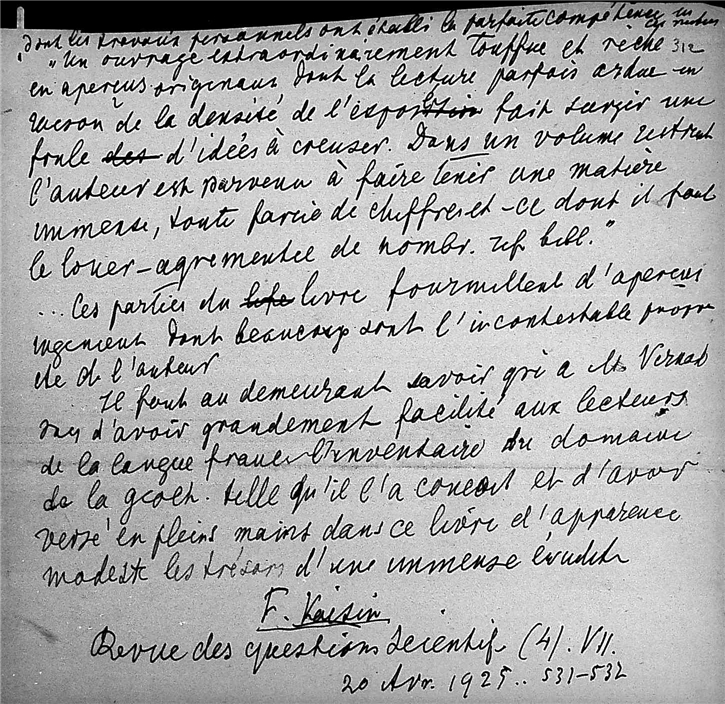 dont les travaux personnels ont établi la parfaite compétence
"Un ouvrage extraordinairement touffue et riche 312
en aperçus originaux dont la lecture parfois ardue en
raison de la densité de l'exposition fait surgir une
foule des d'idées à creuser. Dans un volume restreint
l'auteur est parvenu à faire tenir une matière
immense, toute farcie de chiffres et - ce dont il faut
le louer - agrémentée de nombr. ref. bibl."
... Ces parties du livre fourmillent d'aperçus
ingénieux dont beaucoup sont l'incontestable propri
été de l'auteur
Il faut au demeurant savoir gré à M. Vernad
sky d'avoir grandement facilité aux lecteurs
de la langue franc. l'inventaire du domaine
de la géoch. telle qu'il l'a conçoit et d'avoir
versé en pleins mains dans ce livre d'apparence
modeste les trésors d'une immense érudit.
F. Kaisin
Revue des questions scientif. (4). VII.
20 Avr. 1925.. 531-532